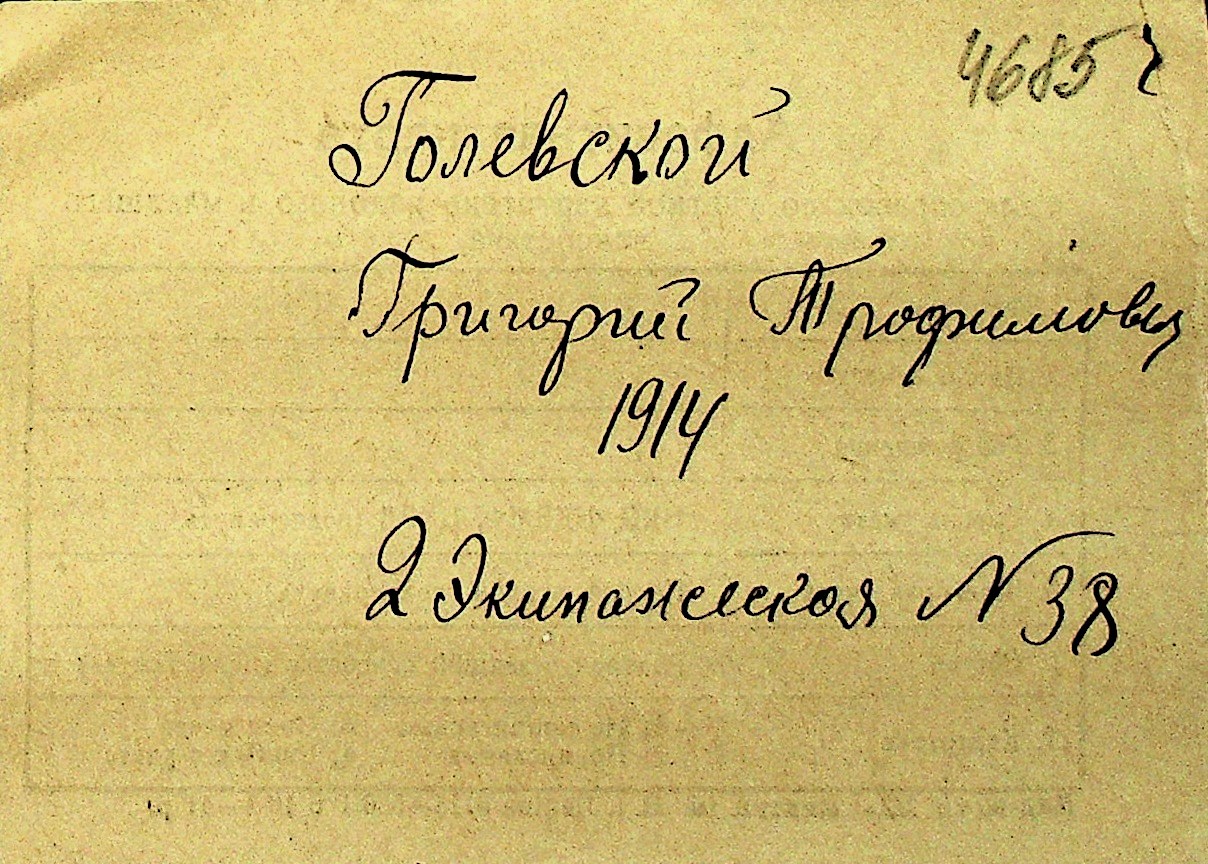 4685
Голевской
Григорий Трофимович
1914
2 Экипажеская N 38